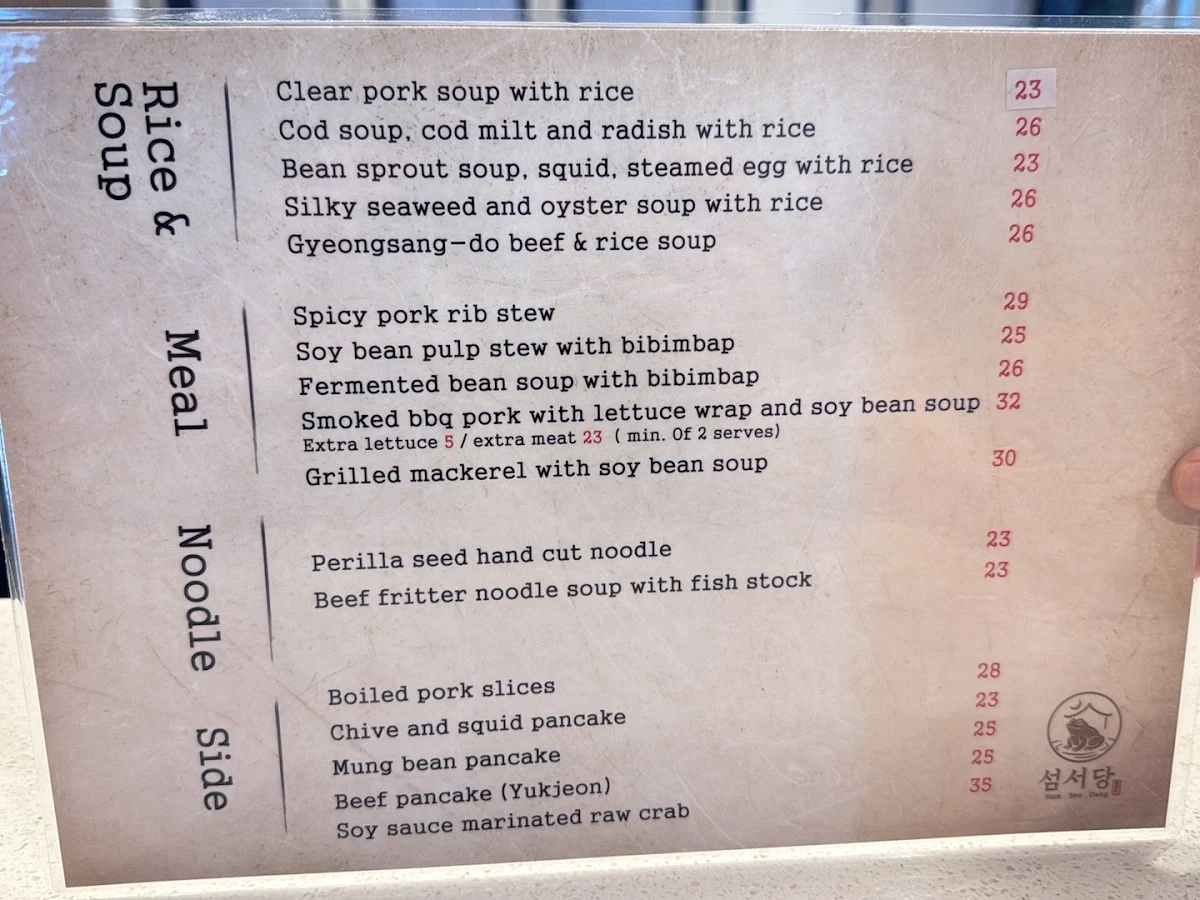 Rice &
Soup
Clear pork soup with rice 23
Cod soup, cod milt and radish with rice 26
Bean sprout soup, squid, steamed egg with rice 23
Silky seaweed and oyster soup with rice 26
Gyeongsang-do beef & rice soup 26
Meal
Spicy pork rib stew 29
Soy bean pulp stew with bibimbap 25
Fermented bean soup with bibimbap 26
Smoked bbq pork with lettuce wrap and soy bean soup 32
Extra lettuce 5 / extra meat 23 ( min. Of 2 serves)
Grilled mackerel with soy bean soup 30
Noodle
Perilla seed hand cut noodle 23
Beef fritter noodle soup with fish stock 23
Side
Boiled pork slices 28
Chive and squid pancake 23
Mung bean pancake 25
Beef pancake (Yukjeon) 25
Soy sauce marinated raw crab 35
섬서당